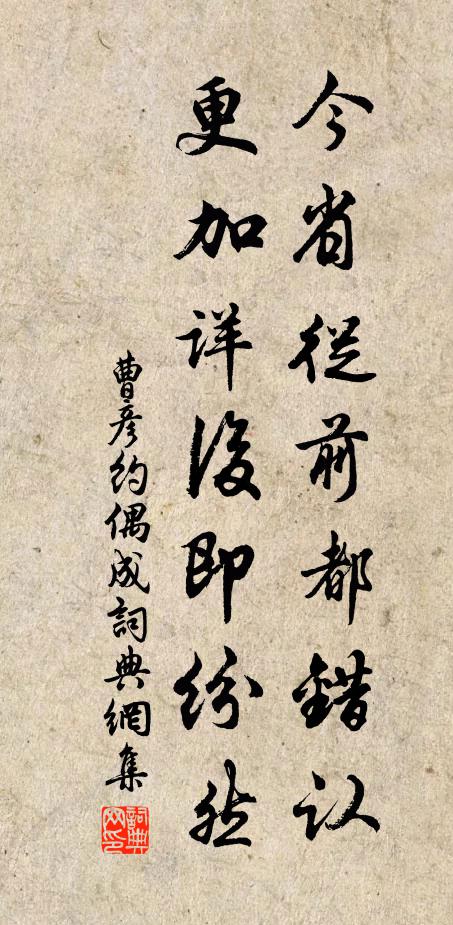 今省從前都錯认
更加詳後即紛然
曹彦约偶成詞典網集
詞典网印